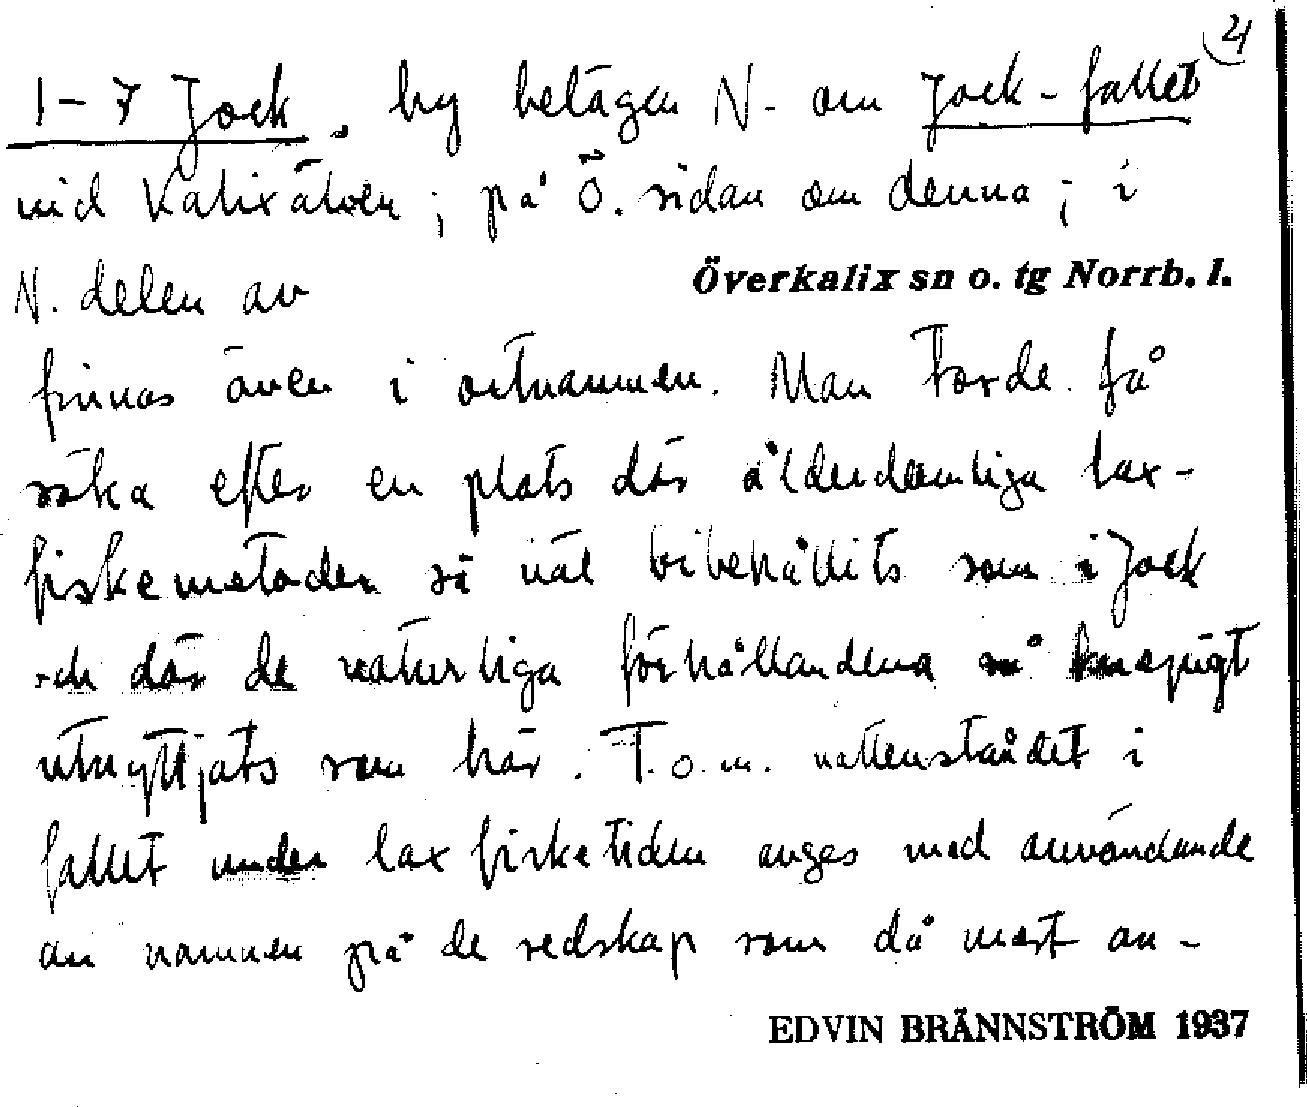 2)
1-7 Jock. by belägen N. om Jock-fallet
vid Kalixälven; på Ö. sidan om denna; i
N. delen av Överkalix sn o. tg Norrb. l.
finnas även i ortnamnen. Man torde få
söka efter en plats där ålderdomliga lax-
fiskemetoder så väl bibehållits som i Jock
och där de naturliga förhållandena så knepigt
utnyttjats som här. T.o.m. vattenståndet i
fallet under laxfisketiden anges med användande
av namnen på de redskap som då mest an-
EDVIN BRÄNNSTRÖM 1937